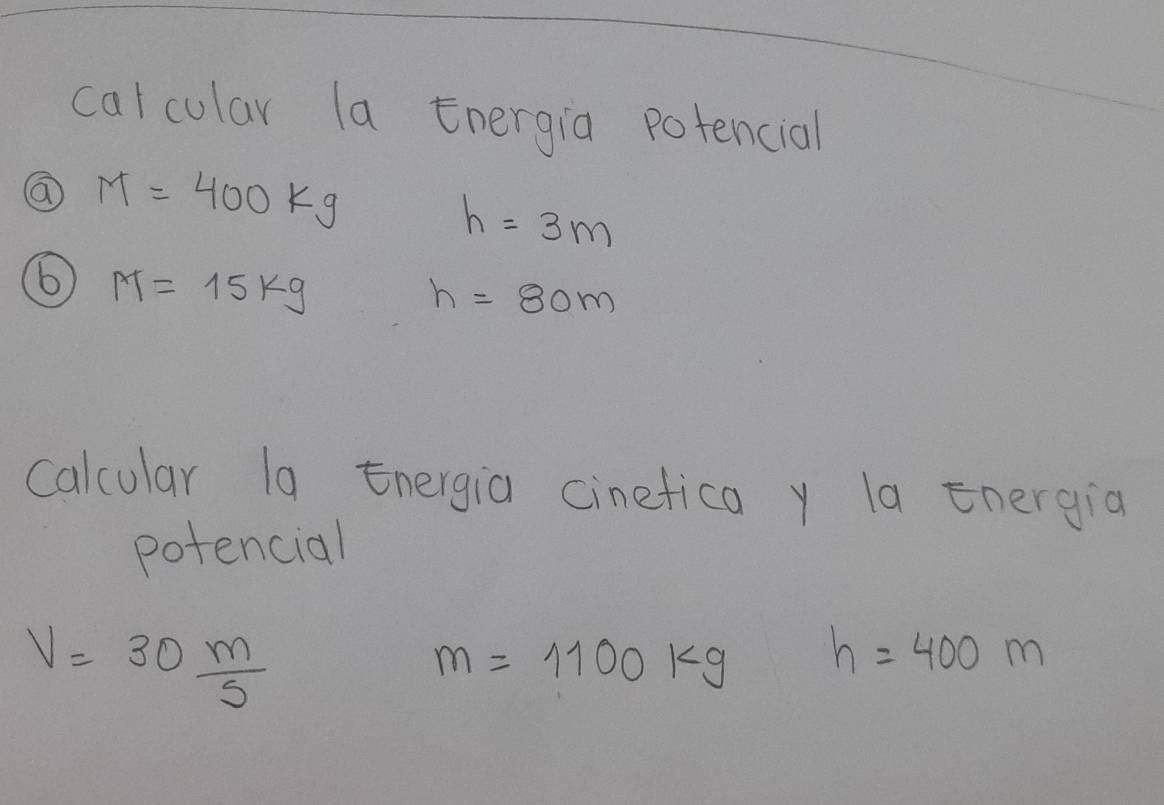 calcular la Energía potencial
ⓐ M = 400 Kg h = 3m
ⓑ M = 15 Kg h = 80m
calcular la Energía cinetica y la Energía
potencial
V = 30 m/s m = 1100 Kg h = 400 m